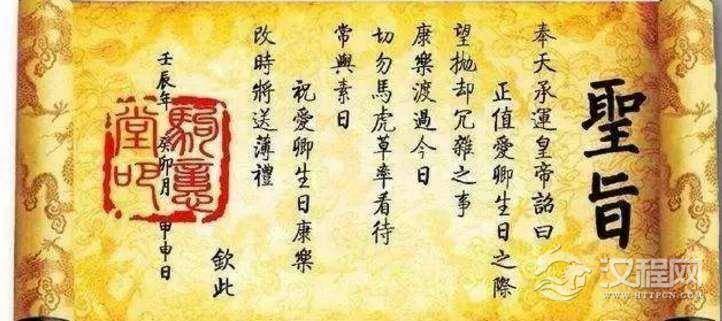 聖旨
奉天承運皇帝詔曰
正值愛卿生日之際
望拋却冗雜之事
康樂渡過今日
切勿馬虎草率看待
常與素日
祝愛卿生日康樂
改時將送薄禮
欽此
壬辰年 癸卯月 甲申日
汉程网
WWW.HTTPCN.COM